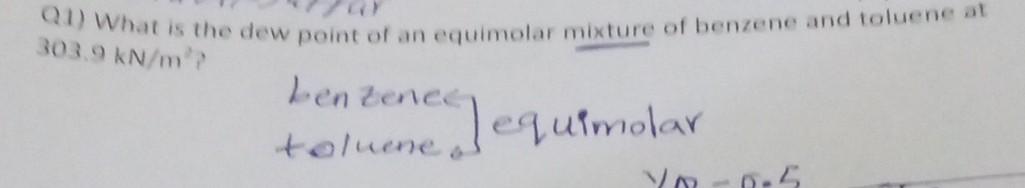 Q1) What is the dew point of an equimolar mixture of benzene and toluene at
303.9 kN/m²?
benzene
toluene
equimolar